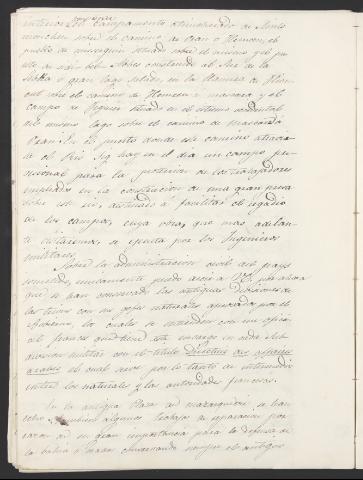 interior, el campamento atrincherado de
sobre el camino de Oran á Tlemcen, el
pueblo de Miserguin situado sobre el mismo y el pue
blo de sidi bel Abbes considerado al Sur de la
Sebkha ó gran lago salado, en la llanura de Tlem
cen sobre el camino de Tlemcen á mascara y el
campo de Figuier situado en el estremo occidental
del mismo lago sobre el camino de mascara á
Oran. En el punto donde este camino atravie
sa el Rio Sig hay en el dia un campo pro
visional para la proteccion de los trabajadores
empleados en la construccion de una gran presa
sobre este rio, destinada á facilitar el regadio
de los campos, cuya obra, que mas adelan
te citaremos, se ejecuta por los Ingenieros
militares.
Sobre la administracion civil del pays
sometido, unicamente puedo decir á V.E. por ahora
que se han conservado las antiguas divisiones de
las tribus con sus gefes naturales, aprobados por el
Gobierno, los cuales se entienden con un oficial
frances que tiene este encargo en cada sub
division militar con el titulo Directeur des affaires
arabes el cual sirve por lo tanto de intermedio
entre los naturales y las autoridades francesas.
En la antigua Plaza de Mazarquivir se han
hecho tambien algunos trabajos de reparacion por
ser de gran importancia para la defensa de
la bahia de Oran conservando siempre el antiguo